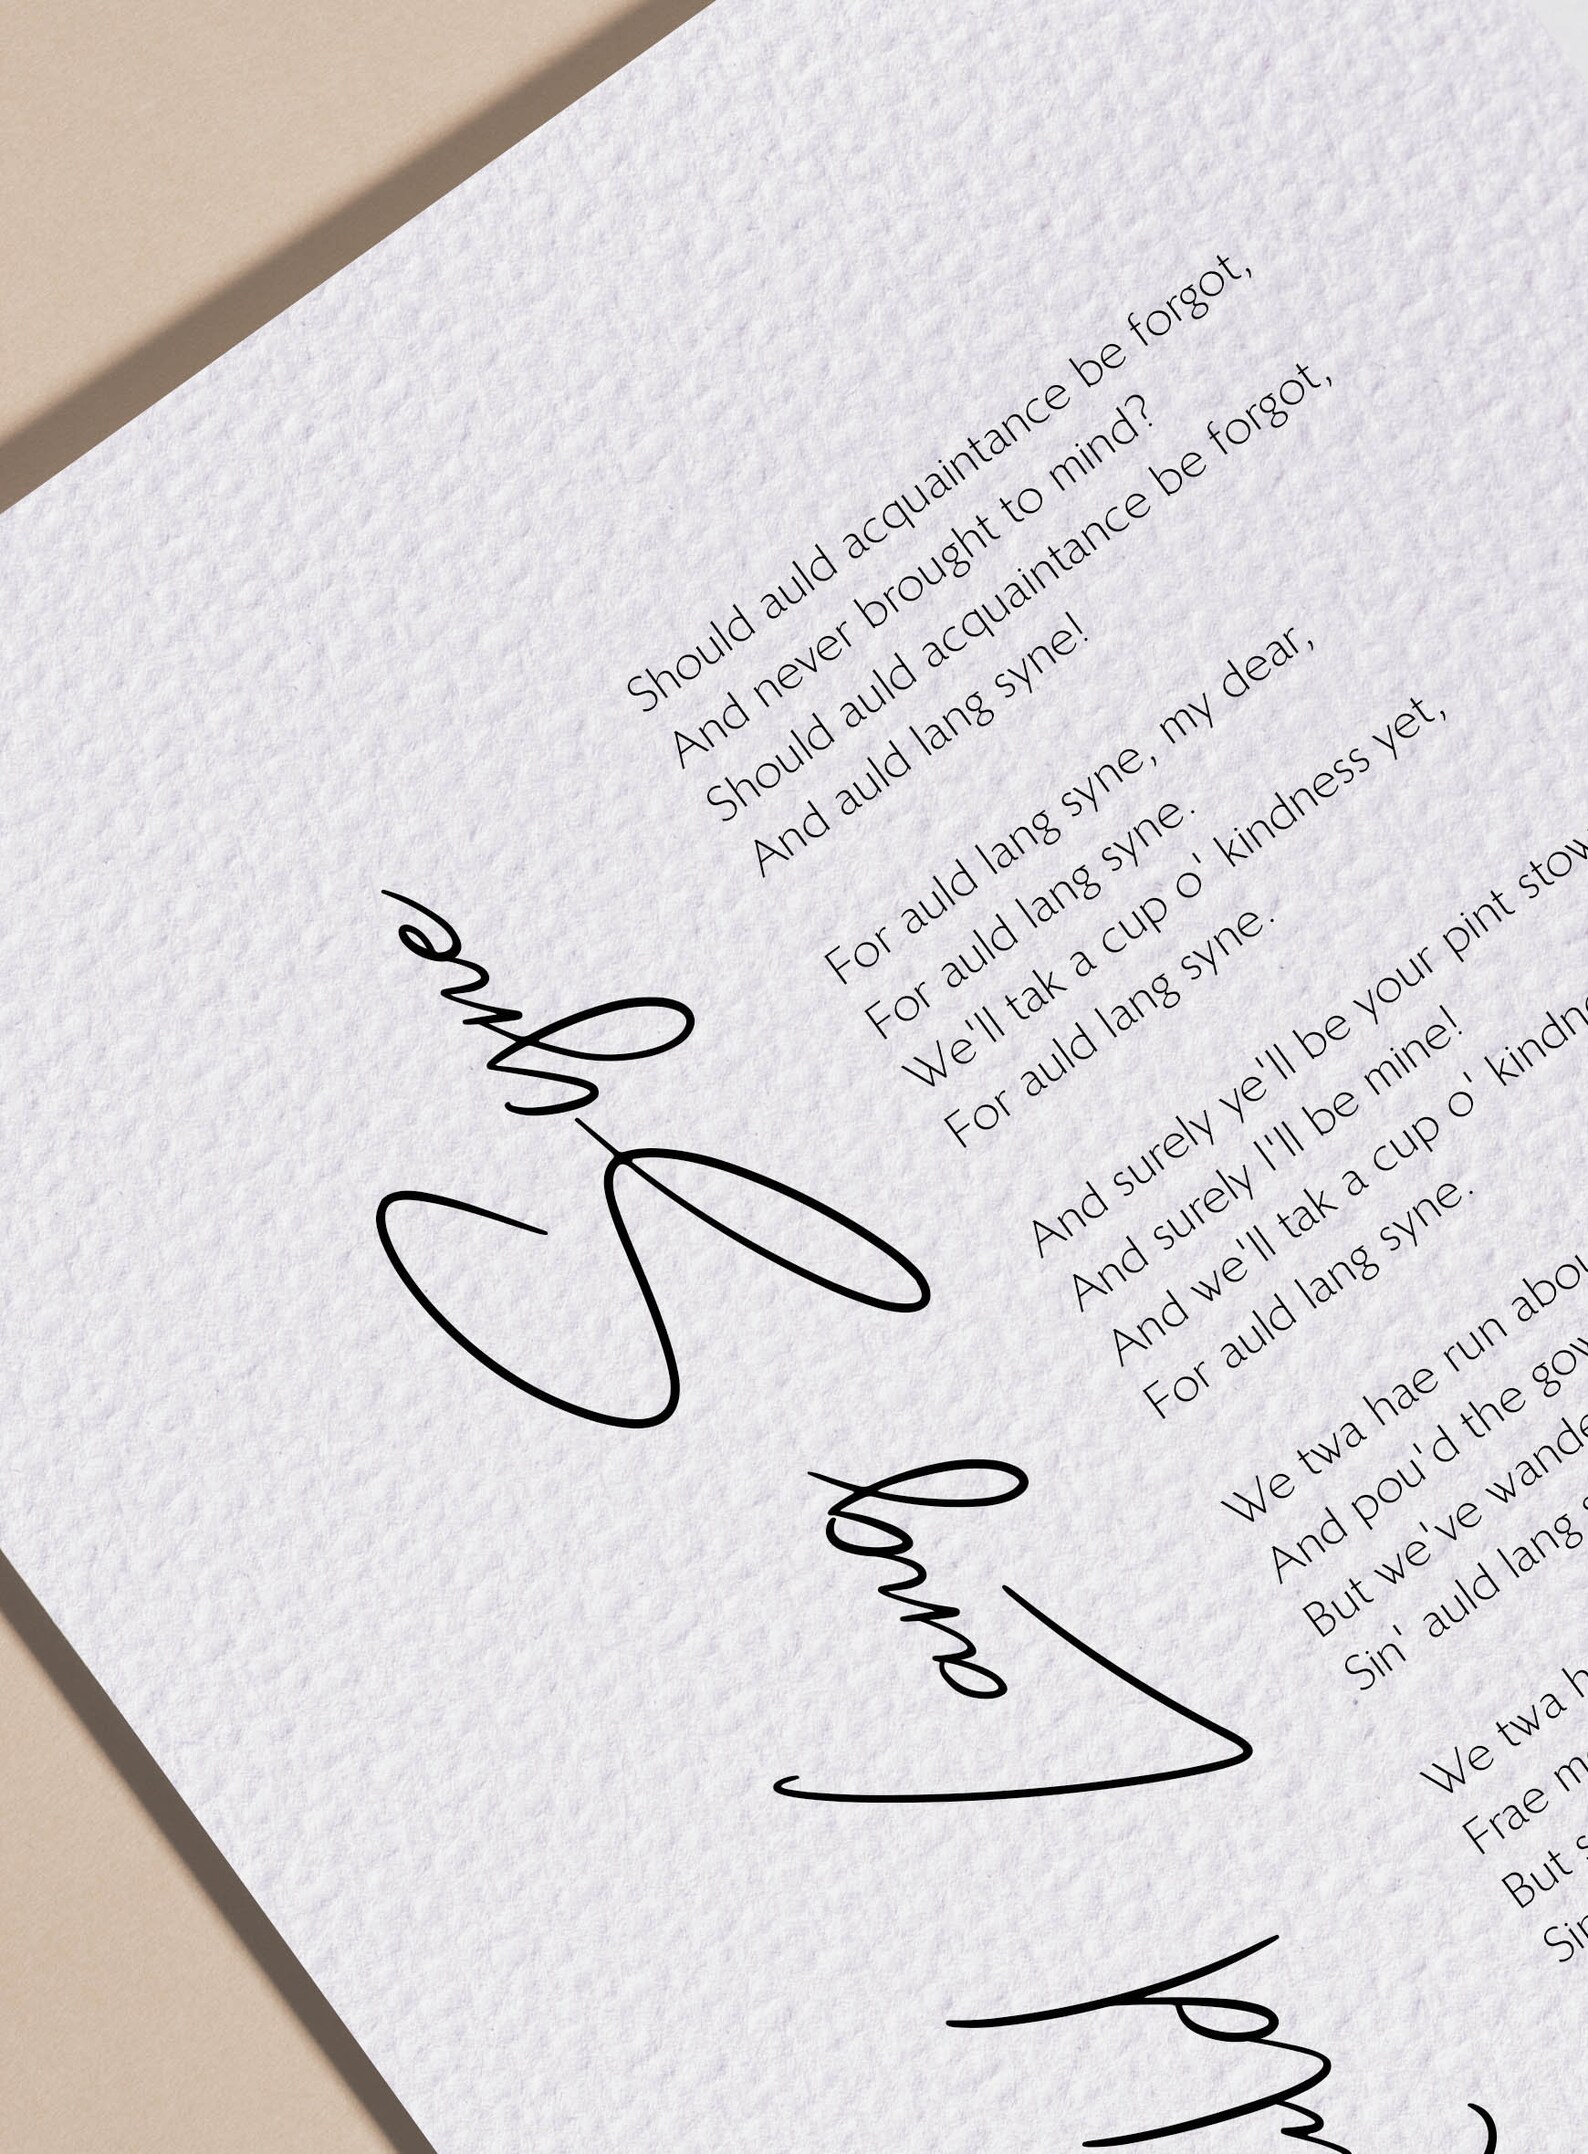 uld Lang Syne
Should auld acquaintance be forgot,
And never brought to mind?
Should auld acquaintance be forgot,
And auld lang syne!
For auld lang syne, my dear,
For auld lang syne.
We'll tak a cup o' kindness yet,
For auld lang syne.
And surely ye'll be your pint stow
And surely I'll be mine!
And we'll tak a cup o' kindn
For auld lang syne.
We twa hae run abou
And pou'd the gow
But we've wande
Sin' auld lang s
We twa h
Frae m
But s
Sin